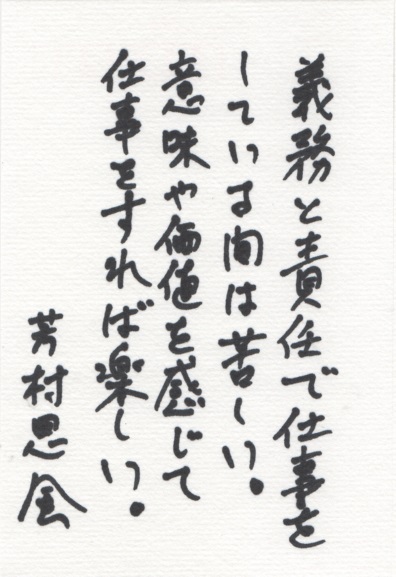 義務と責任で仕事を
している間は苦しい。
意味や価値を感じて
仕事をすれば楽しい。
芳村思風